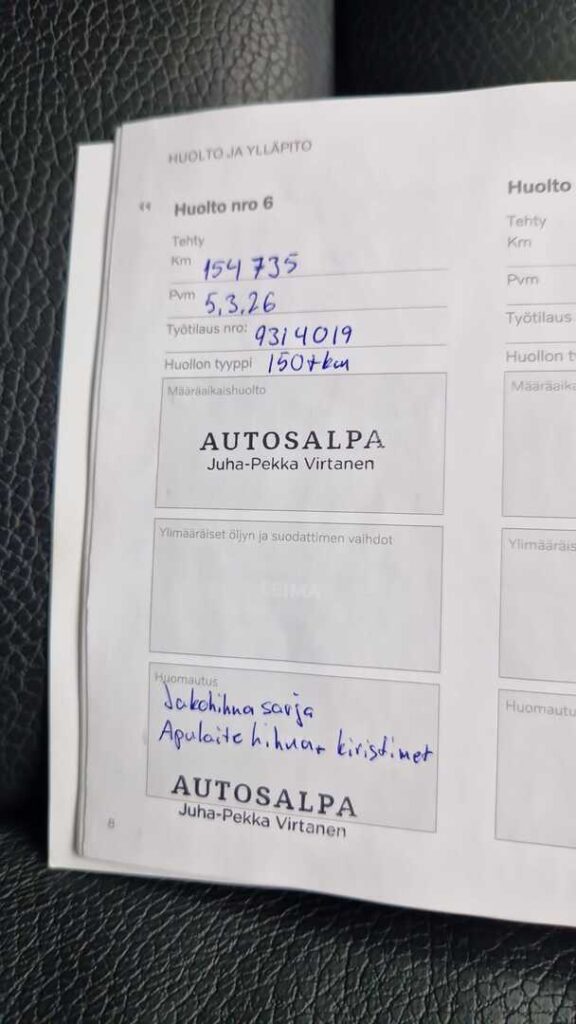 HUOLTO JA YLLÄPITO
Huolto nro 6
Tehty
Km 154 735
Pvm 5.3.26
Työtilaus nro: 9314019
Huollon tyyppi 150tkm
Määräaikaishuolto
AUTOSALPA
Juha-Pekka Virtanen
Ylimääräiset öljyn ja suodattimen vaihdot
LEIMA
Huomautus
Jakohihna sarja
Apulaite hihna + kiristimet
AUTOSALPA
Juha-Pekka Virtanen
8
Huolto
Tehty
Km
Pvm
Työtilaus
Huollon
Määräaika
Ylimääräis
Huomautu